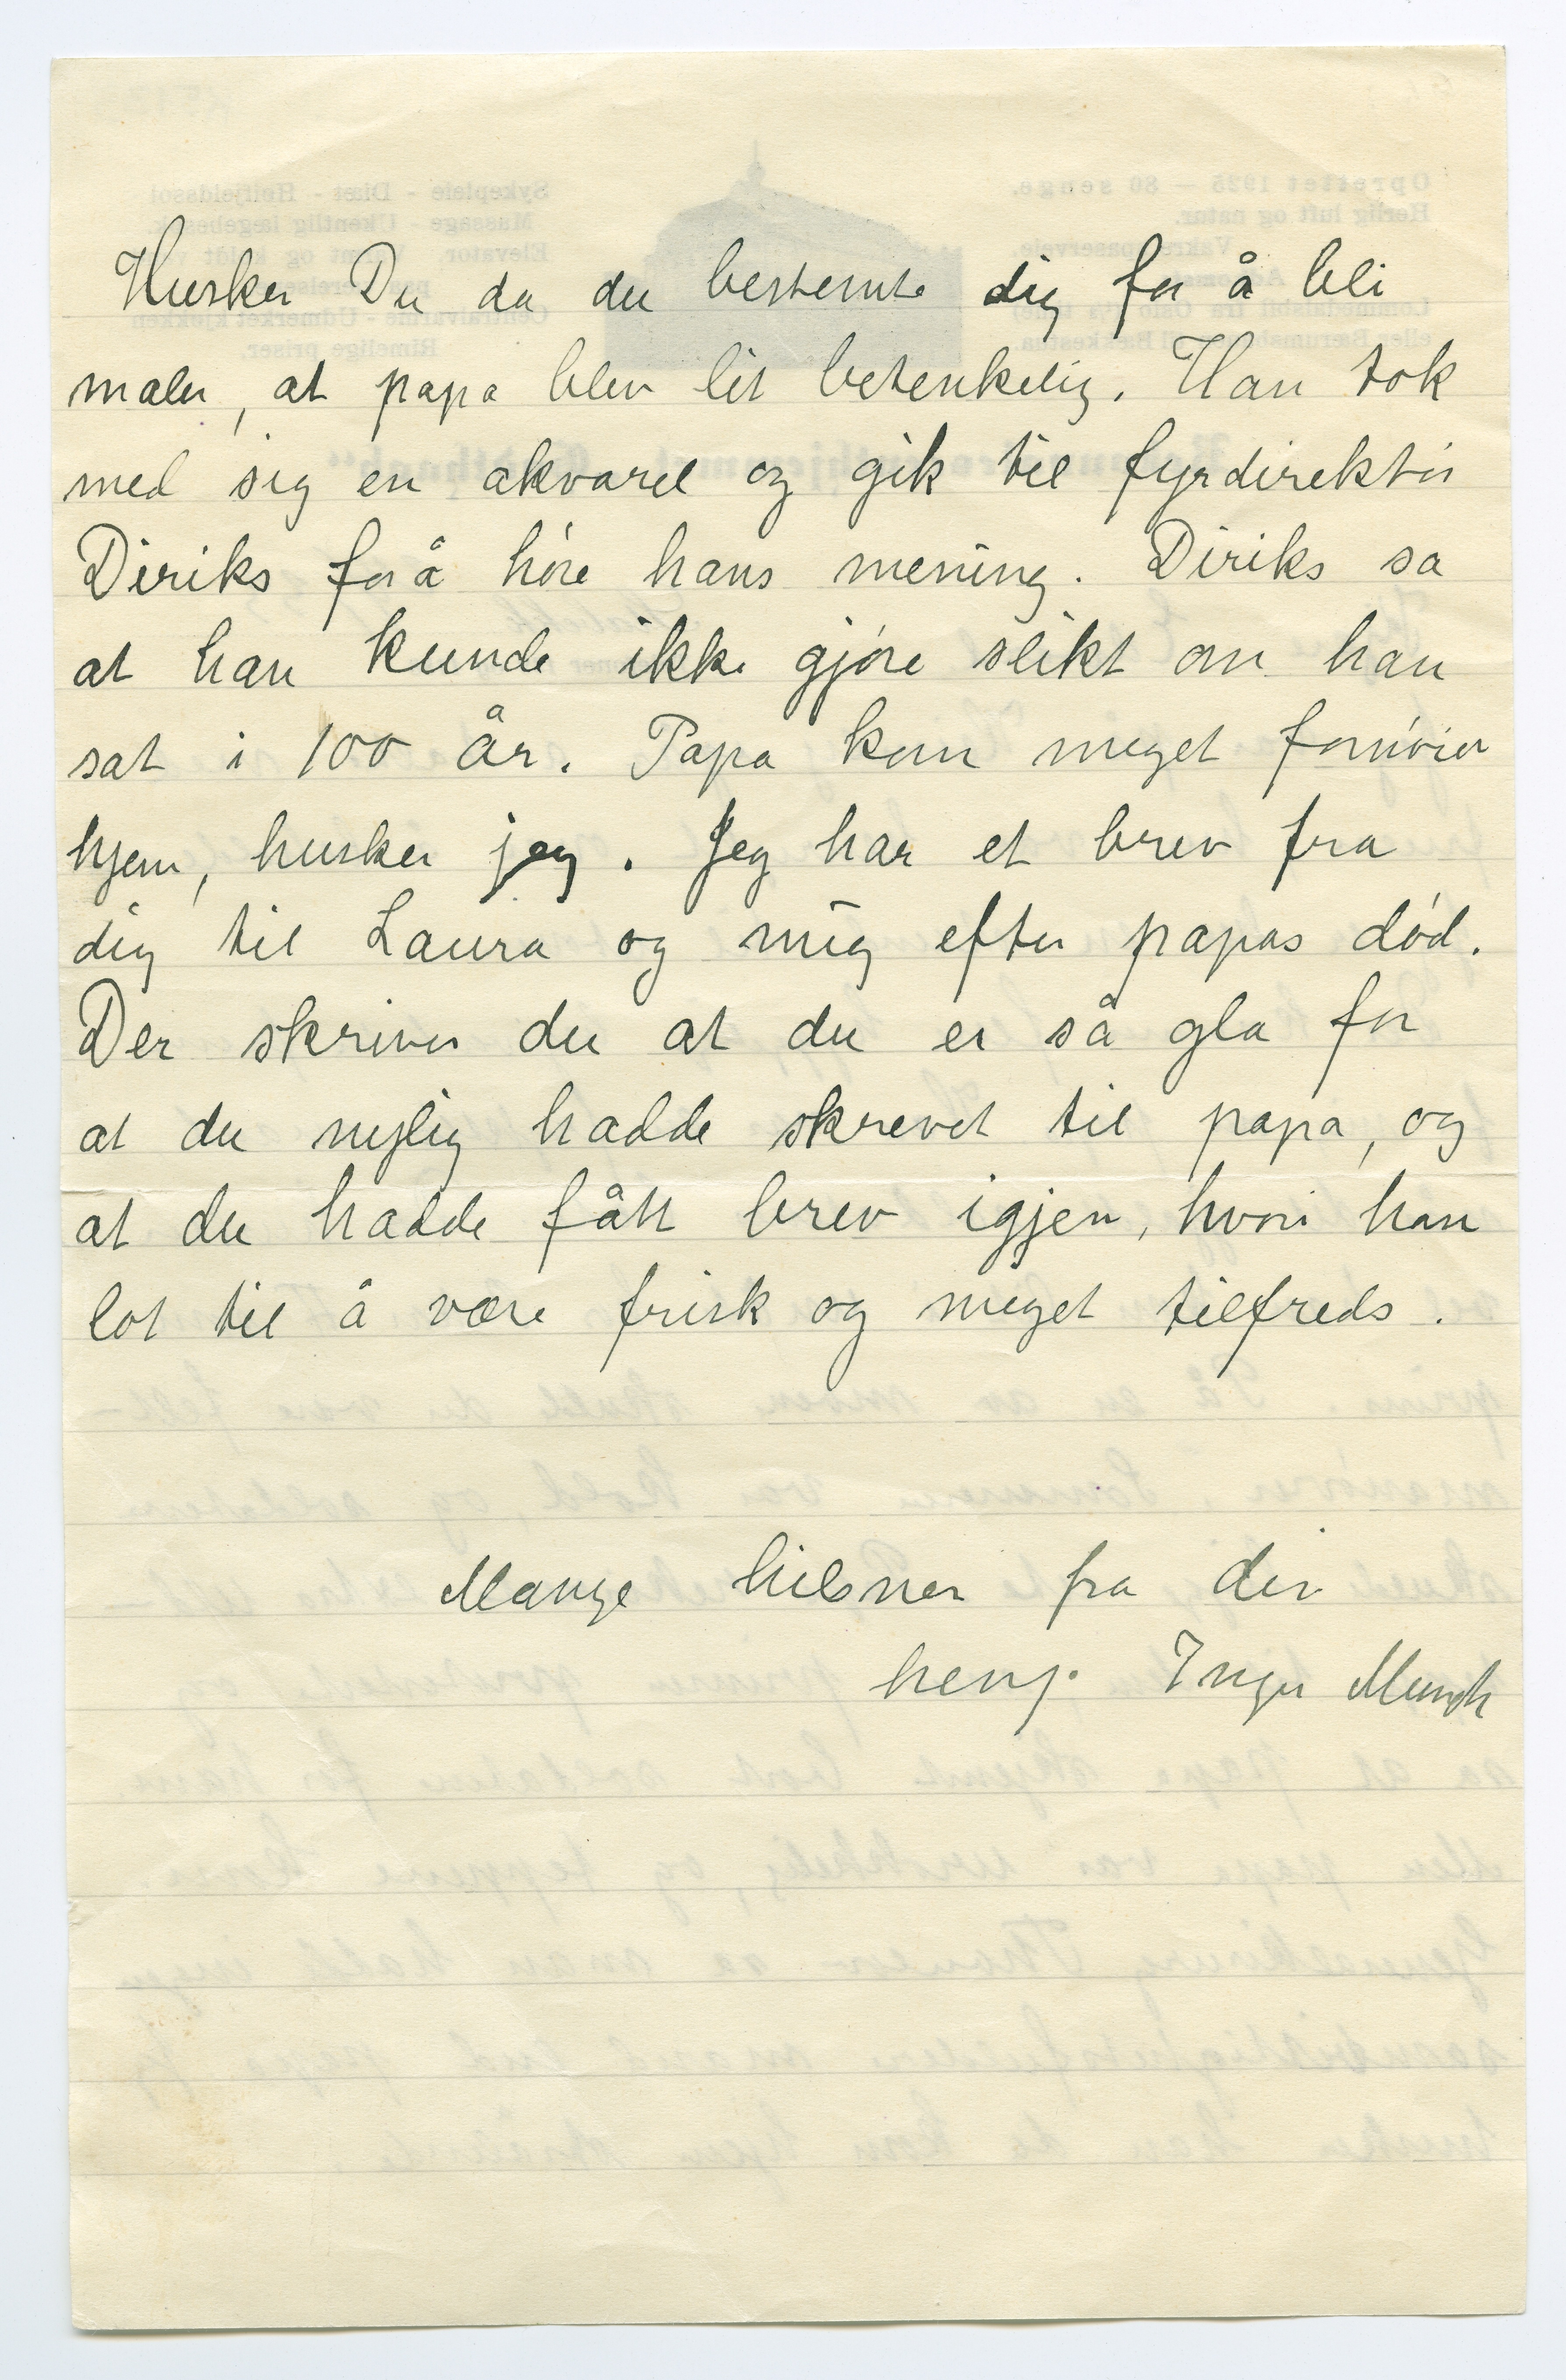 Husker Du da du bestemte dig for å bli
maler, at papa blev lit betenkelig. Han tok
med sig en akvarel og gik til fyrdirektør
Diriks for å høre hans mening. Diriks sa
at han kunde ikke gjøre slikt om han
sat i 100 år. Papa kom meget fornøiet
hjem, husker jeg. Jeg har et brev fra
dig til Laura og mig efter papas død.
Der skriver du at du er så gla for
at du nylig hadde skrevet til papa, og
at du hadde fått brev igjen, hvori han
lot til å være frisk og meget tilfreds.
Mange hilsner fra din
heng. Inger Munch